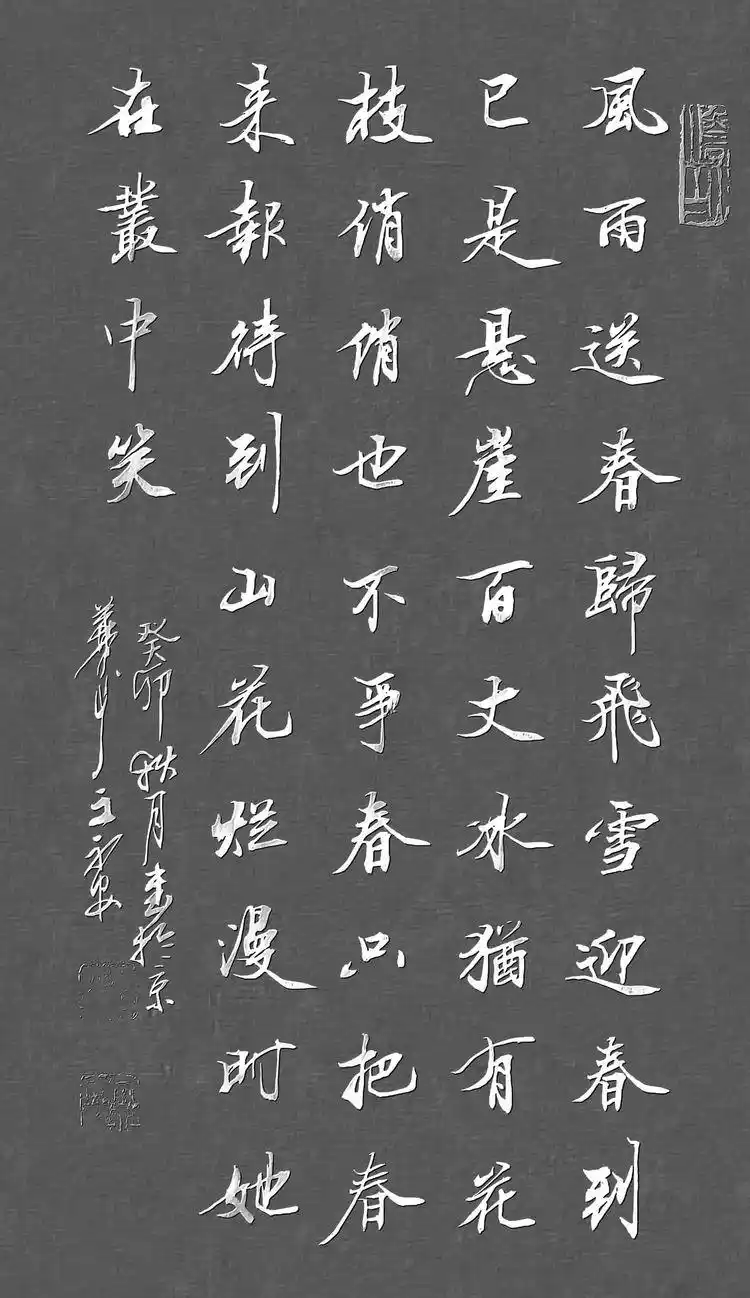 風雨送春歸飛雪迎春到
已是悬崖百丈冰猶有花
枝俏俏也不爭春只把春
来報待到山花烂漫时她
在叢中笑
癸卯秋月書於京